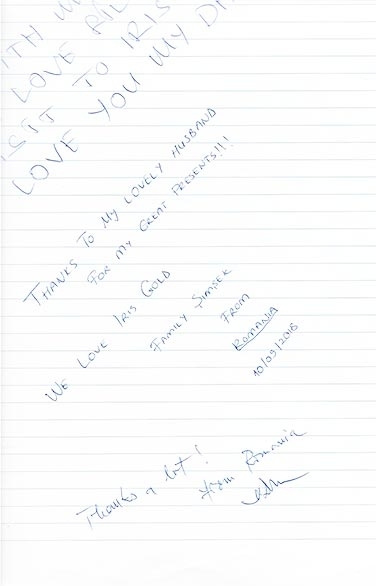 WITH M
LOVE
TO IRIS
LOVE YOU MY D
THANKS TO MY LOVELY HUSBAND
FOR MY GREAT PRESENTS!!!
WE LOVE IRIS GOLD
FAMILY SIMSEK
FROM
ROMANIA
10/09/2016
Thanks a lot!
from Romania